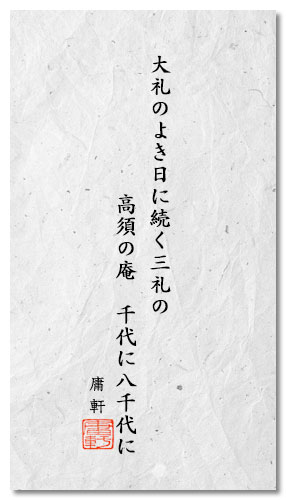 大礼のよき日に続く三礼の
高須の庵　千代に八千代に
庸軒
庸軒